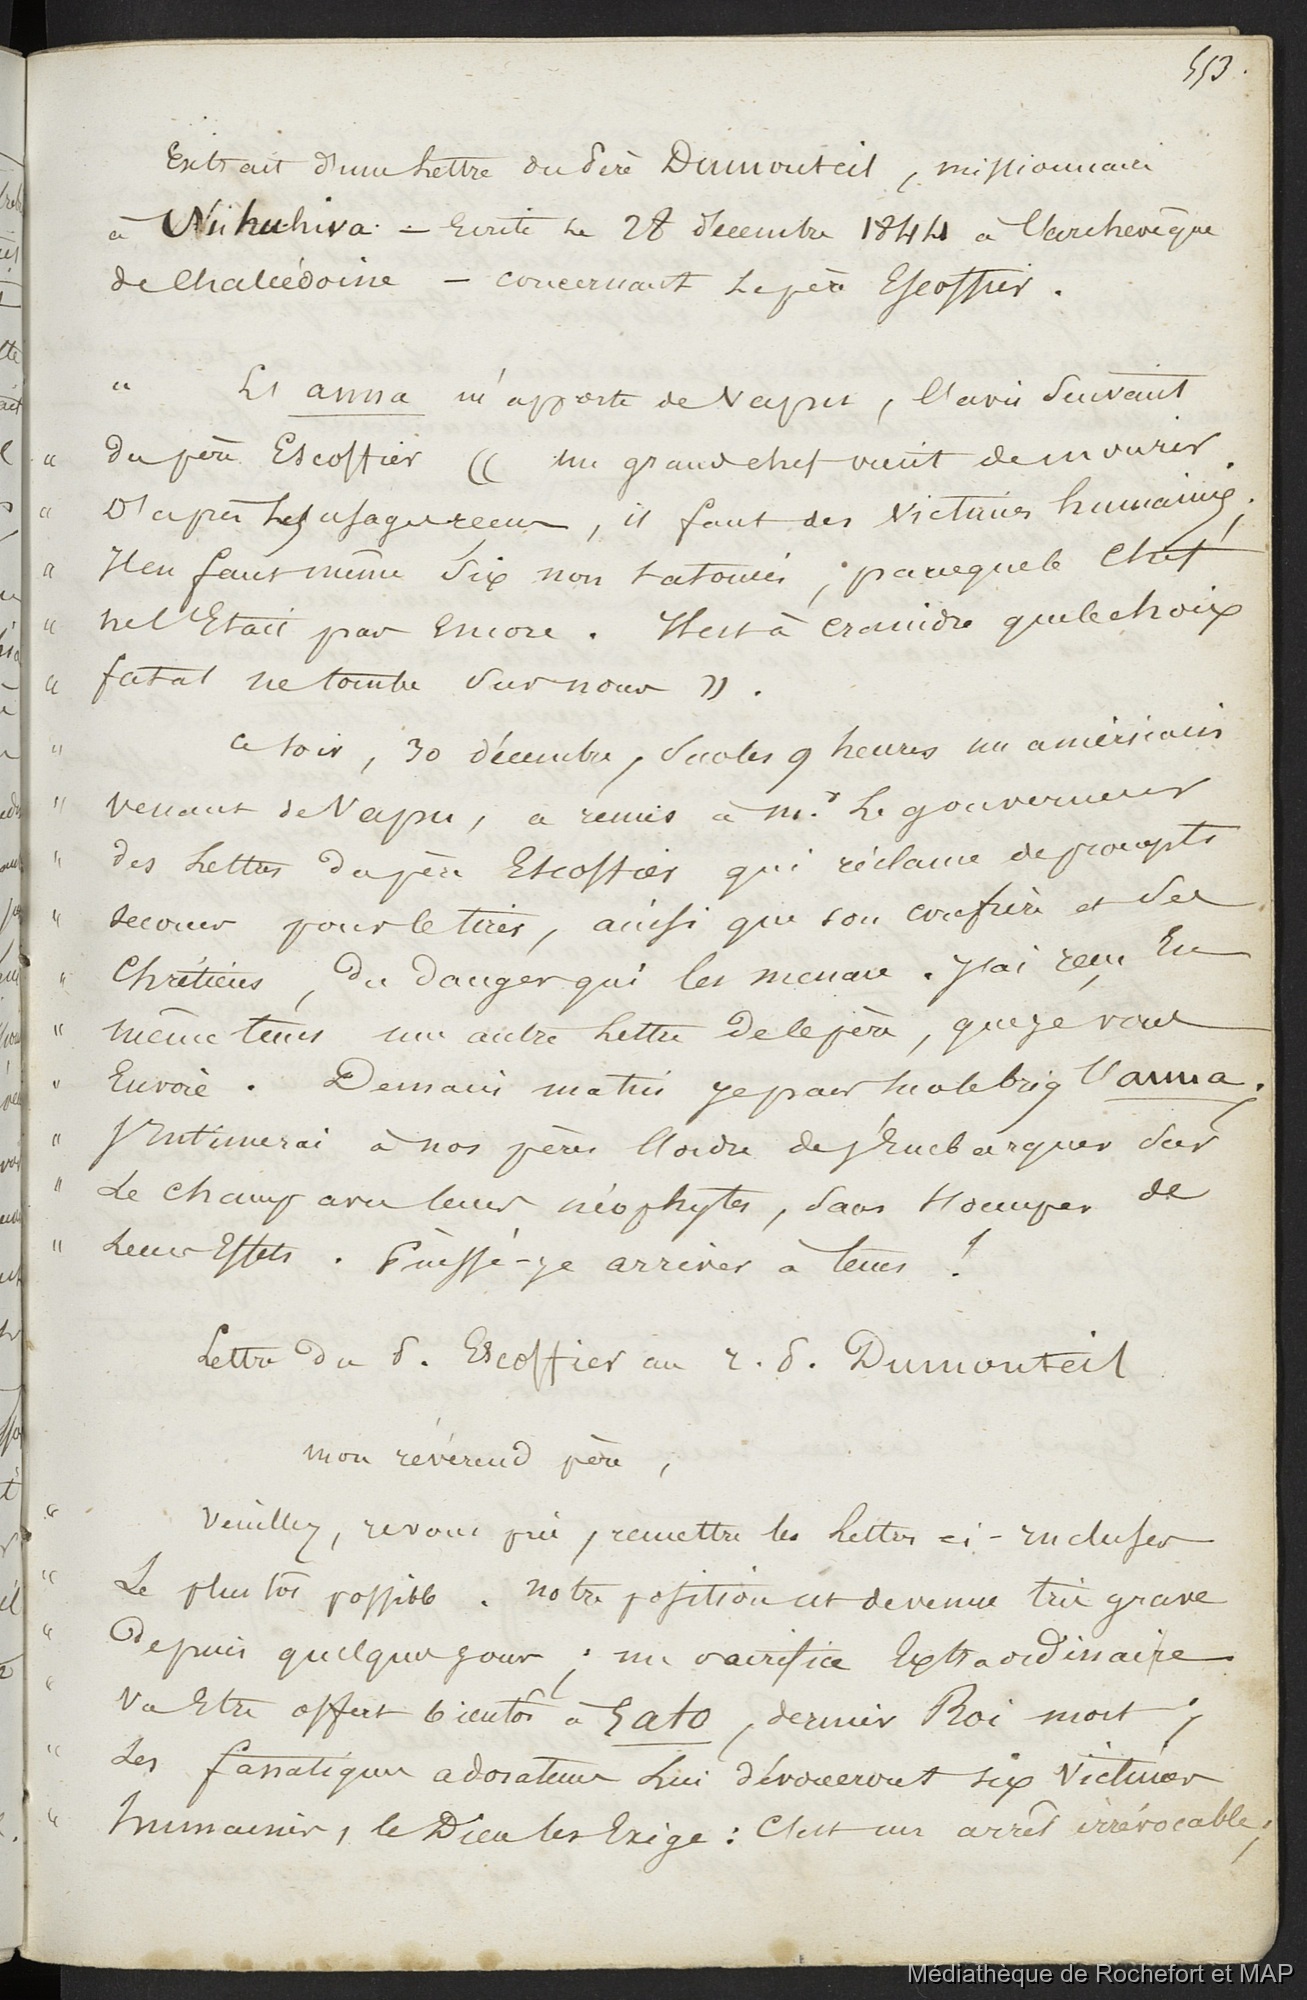 553.
Extrait d'une Lettre du Père Dumonteil, missionnaire
à Nükuhiva. — Ecrite Le 28 décembre 1844 à l'archevêque
de Chalcédoine — concernant Le père Escoffier.
" L'anna m'apporte de Vapu, l'avis suivant
" du père Escoffier (( un grand chef vient de mourir.
" D'après Les usages reçus, il faut des Victimes humaines;
" Il en faut même six non tatouées, parceque le Chef
" ne l'Etait pas Encore. Il est à craindre que le choix
" fatal ne tombe sur nous )).
" Ce soir, 30 décembre, sur les 9 heures un américain
" venant de Vapu, a remis à Mr. Le gouverneur
" des Lettres du père Escoffier qui réclame de prompts
" secours pour le tirer, ainsi que son confrère et ses
" Chrétiens, du danger qui les menace. J'ai reçu En
" même tems une autre Lettre de le père, que je vous
" Envoie. Demain matin je pars sur le brig l'anna;
" J'Intimerai à nos pères l'ordre de s'Embarquer sur
" Le champ avec leurs néophytes, sans s'occuper de
" Leurs Effets. Puissé-je arriver à tems !
Lettre du P. Escoffier au r. P. Dumonteil
mon révérend père,
" Veuillez, je vous prie, remettre les Lettres ci-incluses
" Le plustôt possible. Notre position est devenue très grave
" Depuis quelques jours; un sacrifice Extraordinaire
" Va Etre offert bientôt à Gato, dernier Roi mort;
" Les fanatiques adorateurs Lui dévoueront six Victimes
" humaines, le Dieu les Exige : C'est un arrêt irrévocable;
Médiathèque de Rochefort et MAP